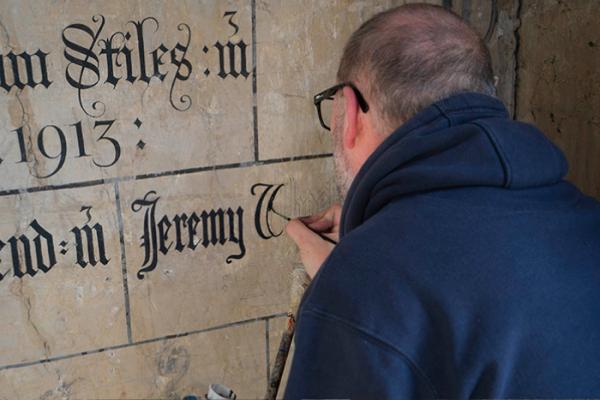 um Stiles : m³
. 1913 :
end : m³ Jeremy